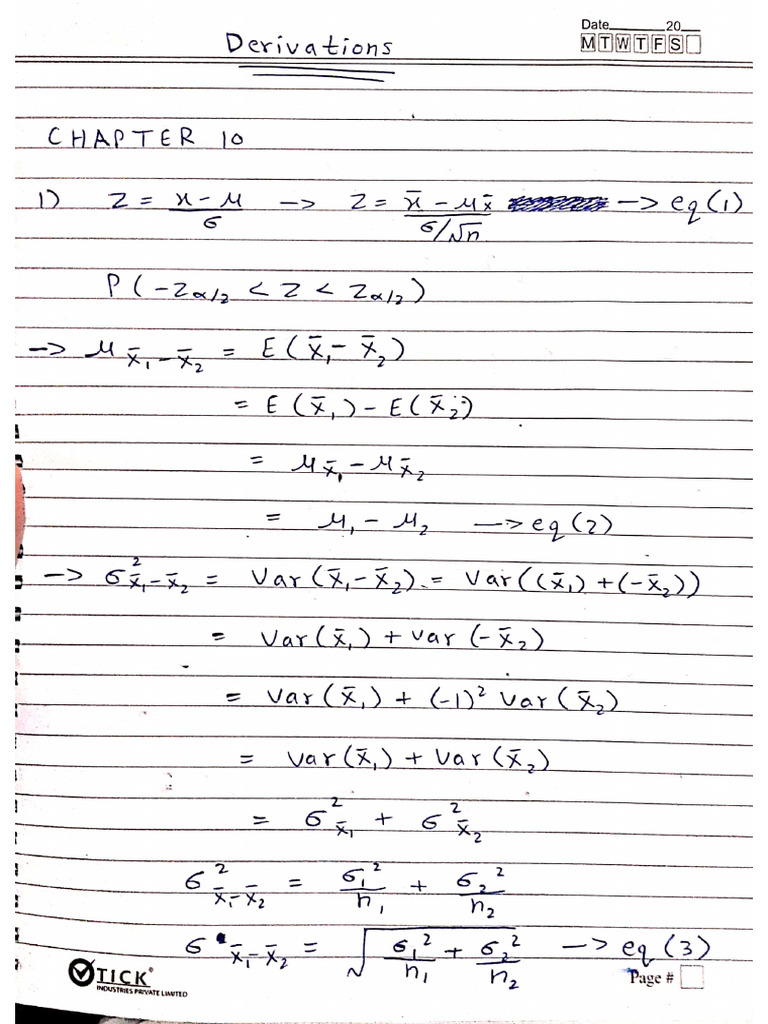 Date______20__
Derivations
M T W T F S
CHAPTER 10
1) Z = x - μ / σ -> Z = x̄ - μx̄ / σ/√n -> eq(1)
P(-Zα/2 < Z < Zα/2)
-> μ x̄₁-x̄₂ = E(x̄₁- x̄₂)
= E(x̄₁) - E(x̄₂)
= μx̄₁ - μx̄₂
= μ₁ - μ₂ -> eq(2)
-> σ² x̄₁-x̄₂ = Var(x̄₁-x̄₂) = Var((x̄₁) + (-x̄₂))
= Var(x̄₁) + var(-x̄₂)
= Var(x̄₁) + (-1)² Var(x̄₂)
= Var(x̄₁) + Var(x̄₂)
= σ² x̄₁ + σ² x̄₂
σ² x̄₁-x̄₂ = σ₁²/n₁ + σ₂²/n₂
σ x̄₁-x̄₂ = √(σ₁²/n₁ + σ₂²/n₂) -> eq(3)
TICK®
INDUSTRIES PRIVATE LIMITED
Page #